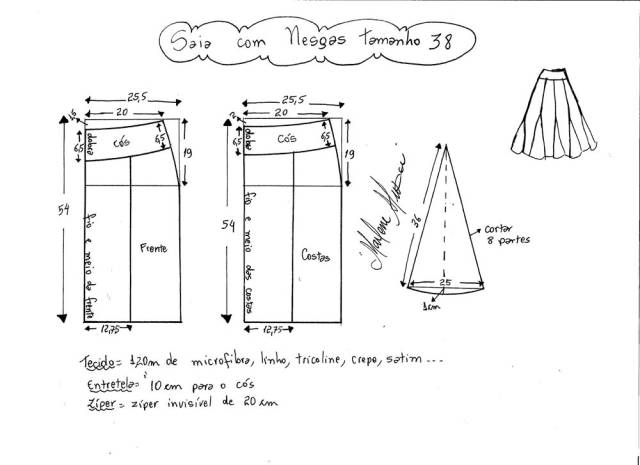 Saia com Nesgas tamanho 38
25,5
20
1,5
6,5
dobra
cós
6,5
19
54
fio e meio da frente
Frente
12,75
25,5
20
2
6,5
dobra
cós
6,5
19
54
fio e meio das costas
Costas
12,75
36
25
1cm
cortar
8 partes
Tecido= 1,20m de microfibra, linho, tricoline, crepe, satim ...
Entretela= 10 cm para o cós
Zíper = zíper invisível de 20 cm